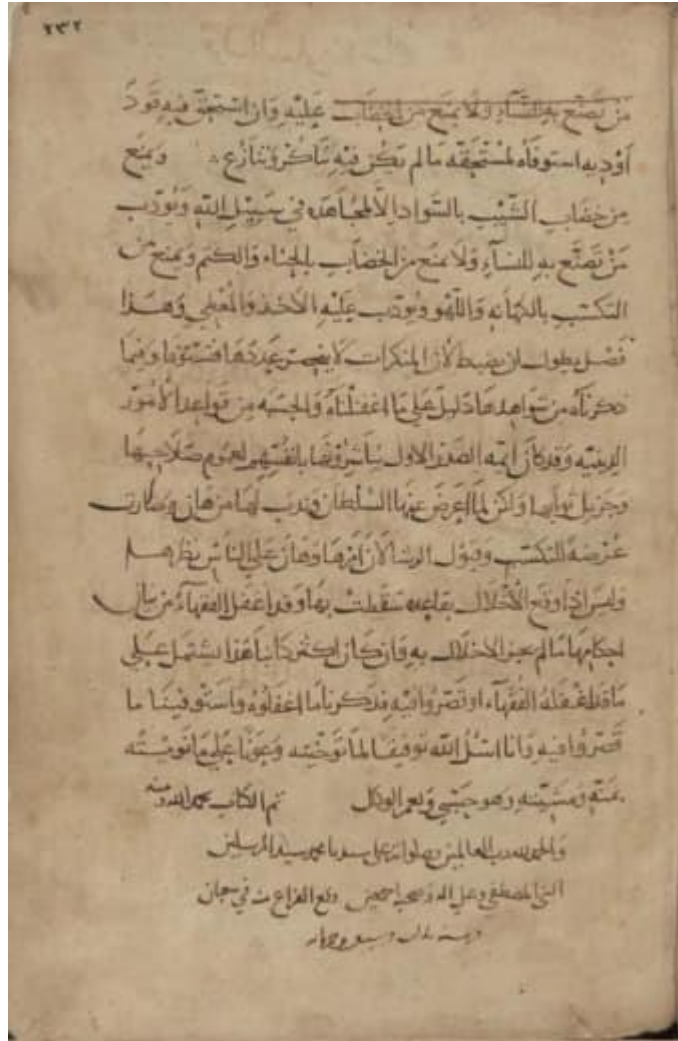 ٢٣٢
مَنْ تَصَنَّعَ بِهِ للنِّسَآءِ وَلَا يمنَع مِنَ الخِضَابِ عَلَيْهِ وَان اسْتحقَّ فيهِ قَوَدٌ
اَوْ دِيه استوفاه لمسْتَحقّه مَا لم يَكُن فِيْهِ تناكرٌ وَتَنازُع ويمنَع
مِن خضَابِ الشَّيْبِ بالسَّوادِ اِلَّا لمُجَاهدٍ فى سَبِيْلِ اللهِ وَيُؤدِّب
مَنْ تصَنَّع بهِ للنسَآءِ وَلَا يمنَع مِنَ الخضَابِ بالحِنّاءِ وَالكتم وَيمنع من
التكسّبِ بالكهَانهِ وَاللَّهو ويُؤدّب عَلَيْهِ الاَخذ وَالمُعْطِى وَهَذا
فَصْل يطول ان يضبط لأن المنكرات لَا ينحصر عَددُهَا فتسْتوفا وفيما
ذكرناه من شواهدِهَا دَليلٌ عَلى مَا اغفلْنَاهُ وَالحِسْبَه مِن قَواعد الاُمُوْر
الدينيه وَقد كان ايمة الصَّدْر الاول يُباشِرُونهَا بانفُسِهِم لعمومِ صَلَاحِهَا
وجزيل ثوابها وَلكن لمّا اعرَضَ عنهَا السُّلطان وندب لَهَا مَن هَان وصَارت
عُرْضَهً للتكسّبِ وقبول الرشا لَانَ اَمرها وَهَانَ عَلى النَّاسِ نظرهَا
وَليسَ اذا وَقع الاخْلَال بقاعِدهٍ سَقطَتْ بهَا وَقد اغفل الفقهآءُ من بيانِ
احكامِهَا مَا لم يجز الاخلال به وَان كَانَ اكثر كتابنا هَذا يشتمل عَلى
مَا قد اغفلهُ الفُقهآء او قصّرُوا فيه فذكرناما اغفلُوهُ وَاستوفيْنَا مَا
قَصَّرُوا فيهِ وَانا اسْئلُ الله توفيقًا لما توخّيته وَعَونًا عَلى مَا نويْتُه
بمنّه وَمَشيّتهِ وَهو حَسْبى وَنعم الوكيل تم الكتاب بحمد الله ومنه
وَالحمد لله رب العالمين وصلواته على سيدنا محمد سيد المرسلين
النبى المصطفى وعلى اله وصحبه اجمعين وقع الفراغ منه فى